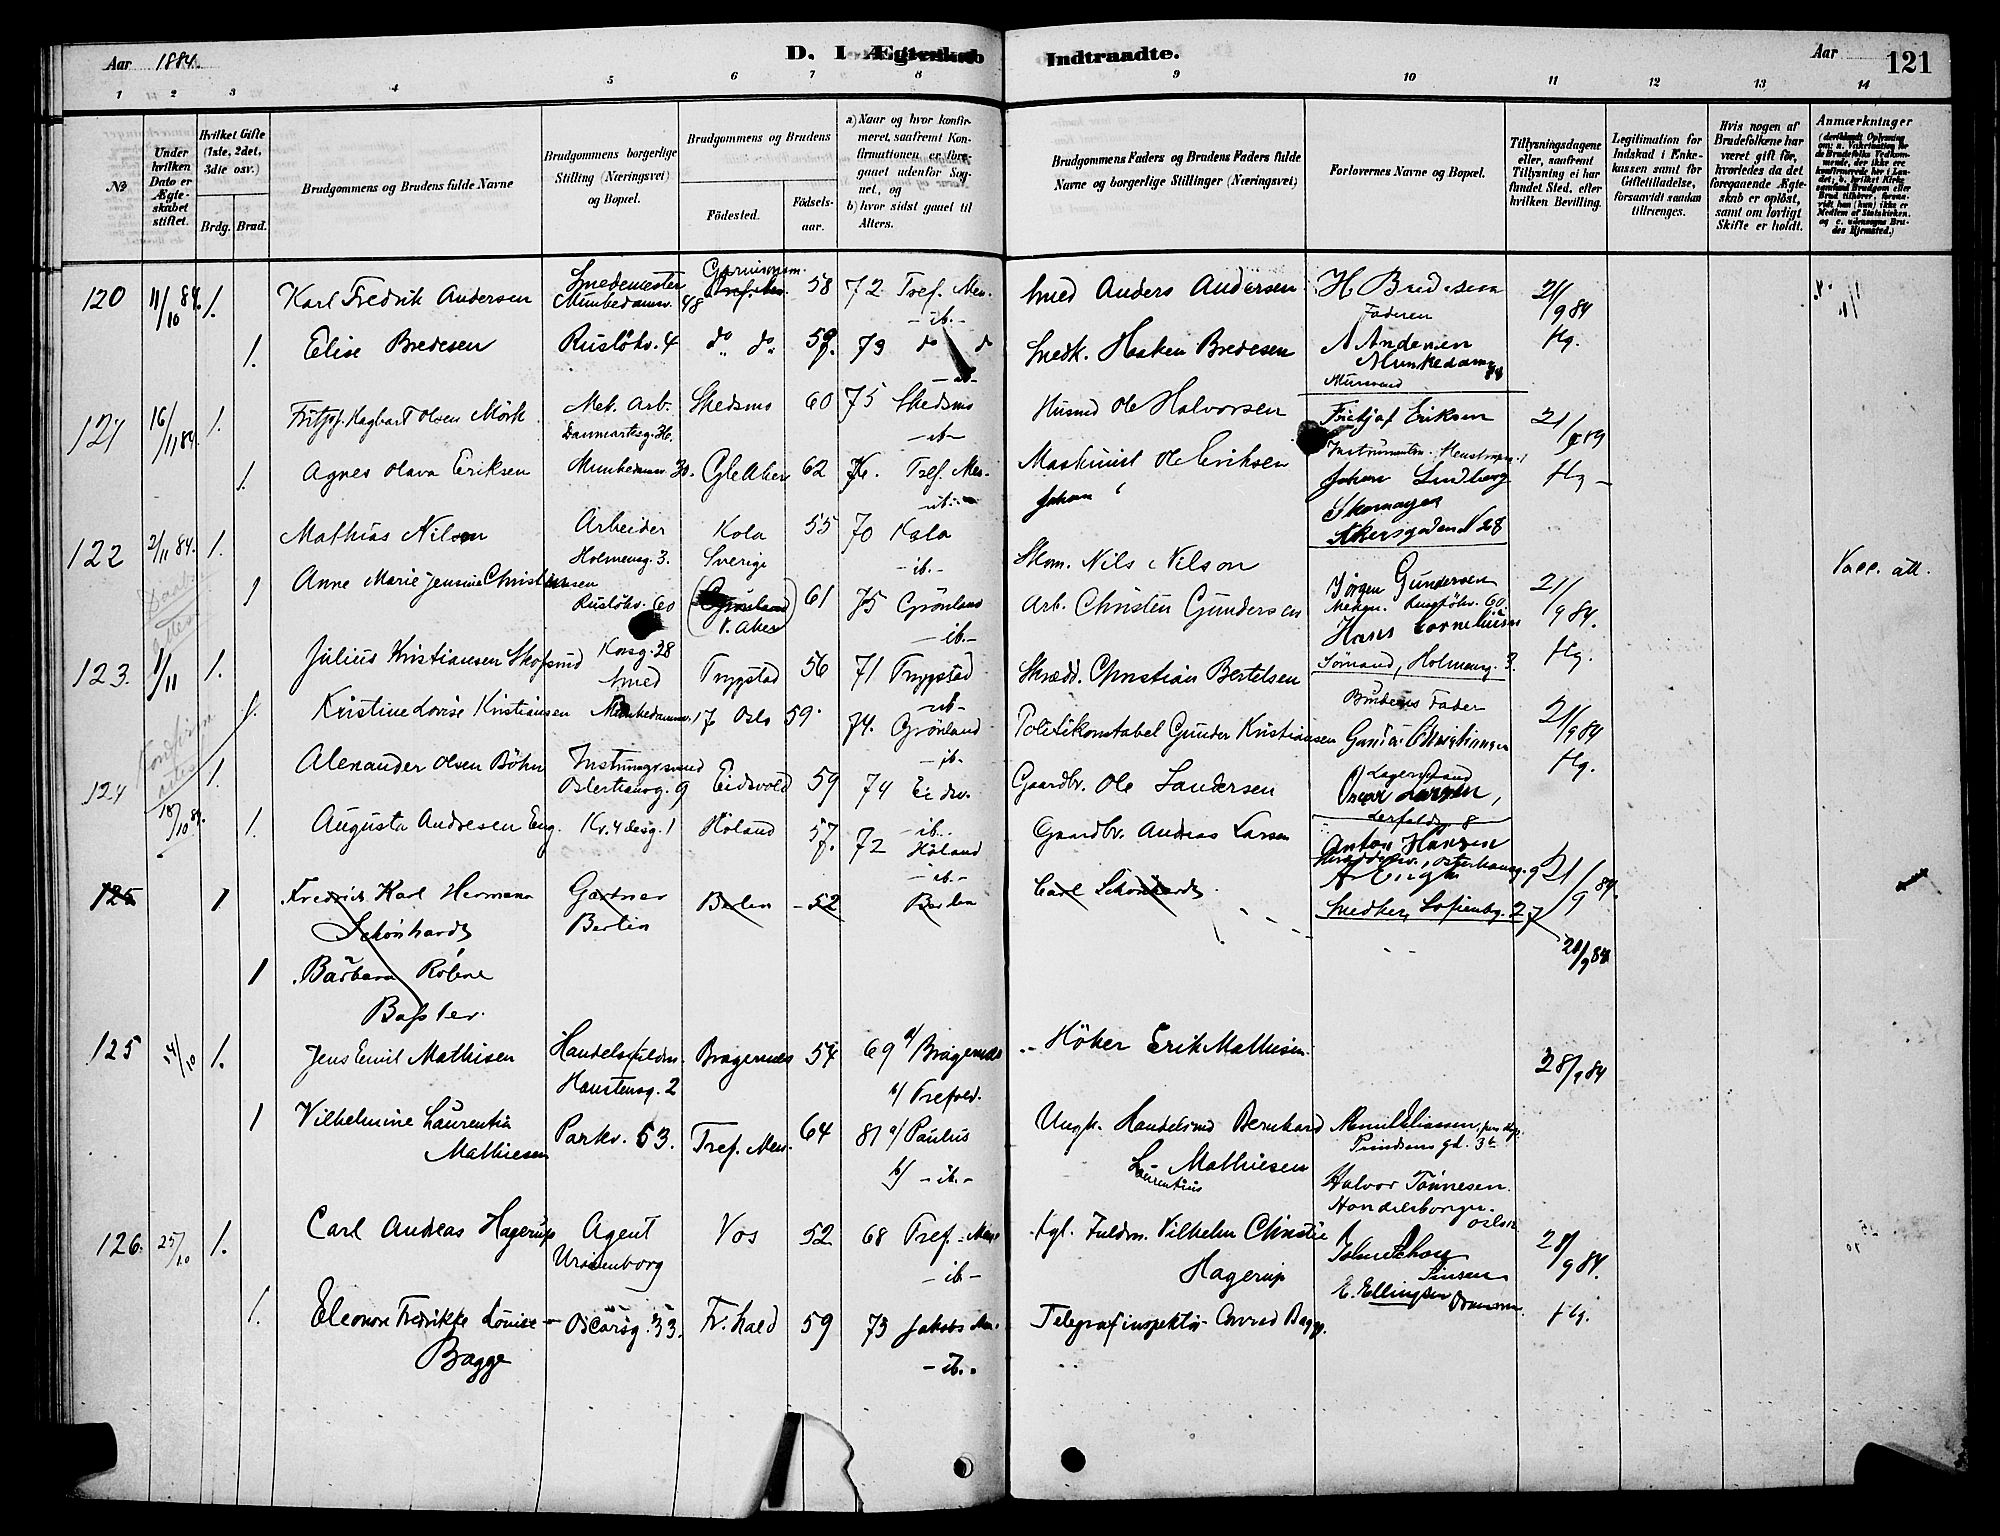 Aar 1884.
D. 1 Ægteskab Indtraadte.
Aar
121
1 2 3 4 5 6 7 8 9 10 11 12 13 14
№
Under hvilken Dato er Ægteskabet stiftet.
Hvilket Gifte (1ste, 2det, 3die osv.)
Brdg. Brud.
Brudgommens og Brudens fulde Navne
Brudgommens borgerlige Stilling (Næringsvei) og Bopæl.
Brudgommens og Brudens
Födested.
Födselsaar.
a) Naar og hvor konfirmeret, saafremt Konfirmationen er foregaaet udenfor Sognet, og
b) hvor sidst gaaet til Alters.
Brudgommens Faders og Brudens Faders fulde Navne og borgerlige Stillinger (Næringsvei)
Forlovernes Navne og Bopæl.
Tillysningsdagene eller, saafremt Tillysning ei har fundet Sted, efter hvilken Bevilling.
Legitimation for Indskud i Enkekassen samt for Giftetilladelse, forsaavidt saadan tiltrænges.
Hvis nogen af Brudefolkene har været gift för, hvorledes da det foregaaende Ægteskab er oplöst, samt om lovligt Skifte er holdt.
Anmærkninger
120 11/10 84. 1. Karl Fredrik Andersen Smedemester Munkedamsv. 48 Garnisonsm. 58 72 Tref. Men. -ib.- Smed Anders Andersen H Bredesen Faderen 21/9 84
1. Elise Bredesen Ruslökv. 4 do do 59 73 do do -ib- Snedk. Haaken Bredesen A Andersen Munkedamsv 48 Hg.
121 16/11 84. 1. Fritjof Hagbart Olsen Mörk Mek. Arb. Danmarksg. 36. Skedsmo 60 75 Skedsmo -ib- Husmd Ole Halvorsen Fritjof Eriksen 21/9 84
1. Agnes Olava Eriksen Munkedamsv 30. Gl. Aker 62 76. Tref. Men. -ib- Maskinist Ole Eriksen Johan Johan Lindberg Skomager Akersgaden N 28 Hg -
122 2/11 84. 1. Mathias Nilsen Arbeider Holmensg. 3. Kola Sverige 55 70 Kola -ib.- Skom. Nils Nilson Jörgen Gundersen Ruslökv. 60 21/9 84. Vacc. att.
1 Anne Marie Jensine Christiansen Ruslökv. 60 (Grönland V. Aker) 61 75 Grönland -ib.- Arb. Christen Gundersen Hans Cornelius Sömand, Holmensg. 3. Hg.
123. 1/11 1. Julius Kristiansen Skofsrud Korsg. 28 Smed Trygstad 56 71 Trygstad -ib- Skrædd. Christian Bertelsen Brudens Fader 21/9 84
1. Kristine Lovise Kristiansen Munkedamsv. 17 Oslo 59. 74. Grönland -ib- Politikonstabel Gunder Kristiansen Gunder Christiansen Hg.
124 18/10 84. 1. Alexander Olsen Böhn Osterhausg. 9 Eidsvold 59 74 Eidsv. -ib.- Gaardbr. Ole Sandersen Lagermand Oscar Larsen,
1. Augusta Andresen Eng. Kr. 4desg. 1 Höland 57. 72 Höland -ib- Gaardbr. Andreas Larsen Anton Hansen Osterhausg. 9 Snedker, Sofienbg. 27 21/9 84.
125 1 Fredrick Karl Hermann Schönhardt Gartner Berlin Berlin -52 Berlin Carl Schönhardt 28/9 84
1 Barbara Rosine Bassler.
125 14/10 1. Jens Emil Mathisen Handelsfuldm. Haustensg. 2 Bragernæs 54 69 a/ Bragernæs b/ Trefold. Höker Erik Mathisen. 28/9 84
1 Vilhelmine Laurentia Mathiesen Parkv. 53. Tref. Men. 64 81 a/ Paulus b/ -ib.- Ungk. Handelsmd Bernhard Laurentius Mathiesen Prindsens gd. 3b Halvor Tönnesen. Handelsborger. Oslo
126. 25/10 1. Carl Andreas Hagerup Agent Uranienborg Vos 52 68 Tref. Men -ib- kgl. Fuldm. Vilhelm Christie Hagerup 28/9 84.
1. Eleonore Fredrikke Louise Bagge Oscarsg. 33. Fr. hald 59 73 Jakobs Men. -ib.- Telegrafinspektör Conrad Bagge. E. Ellingsen Hg.